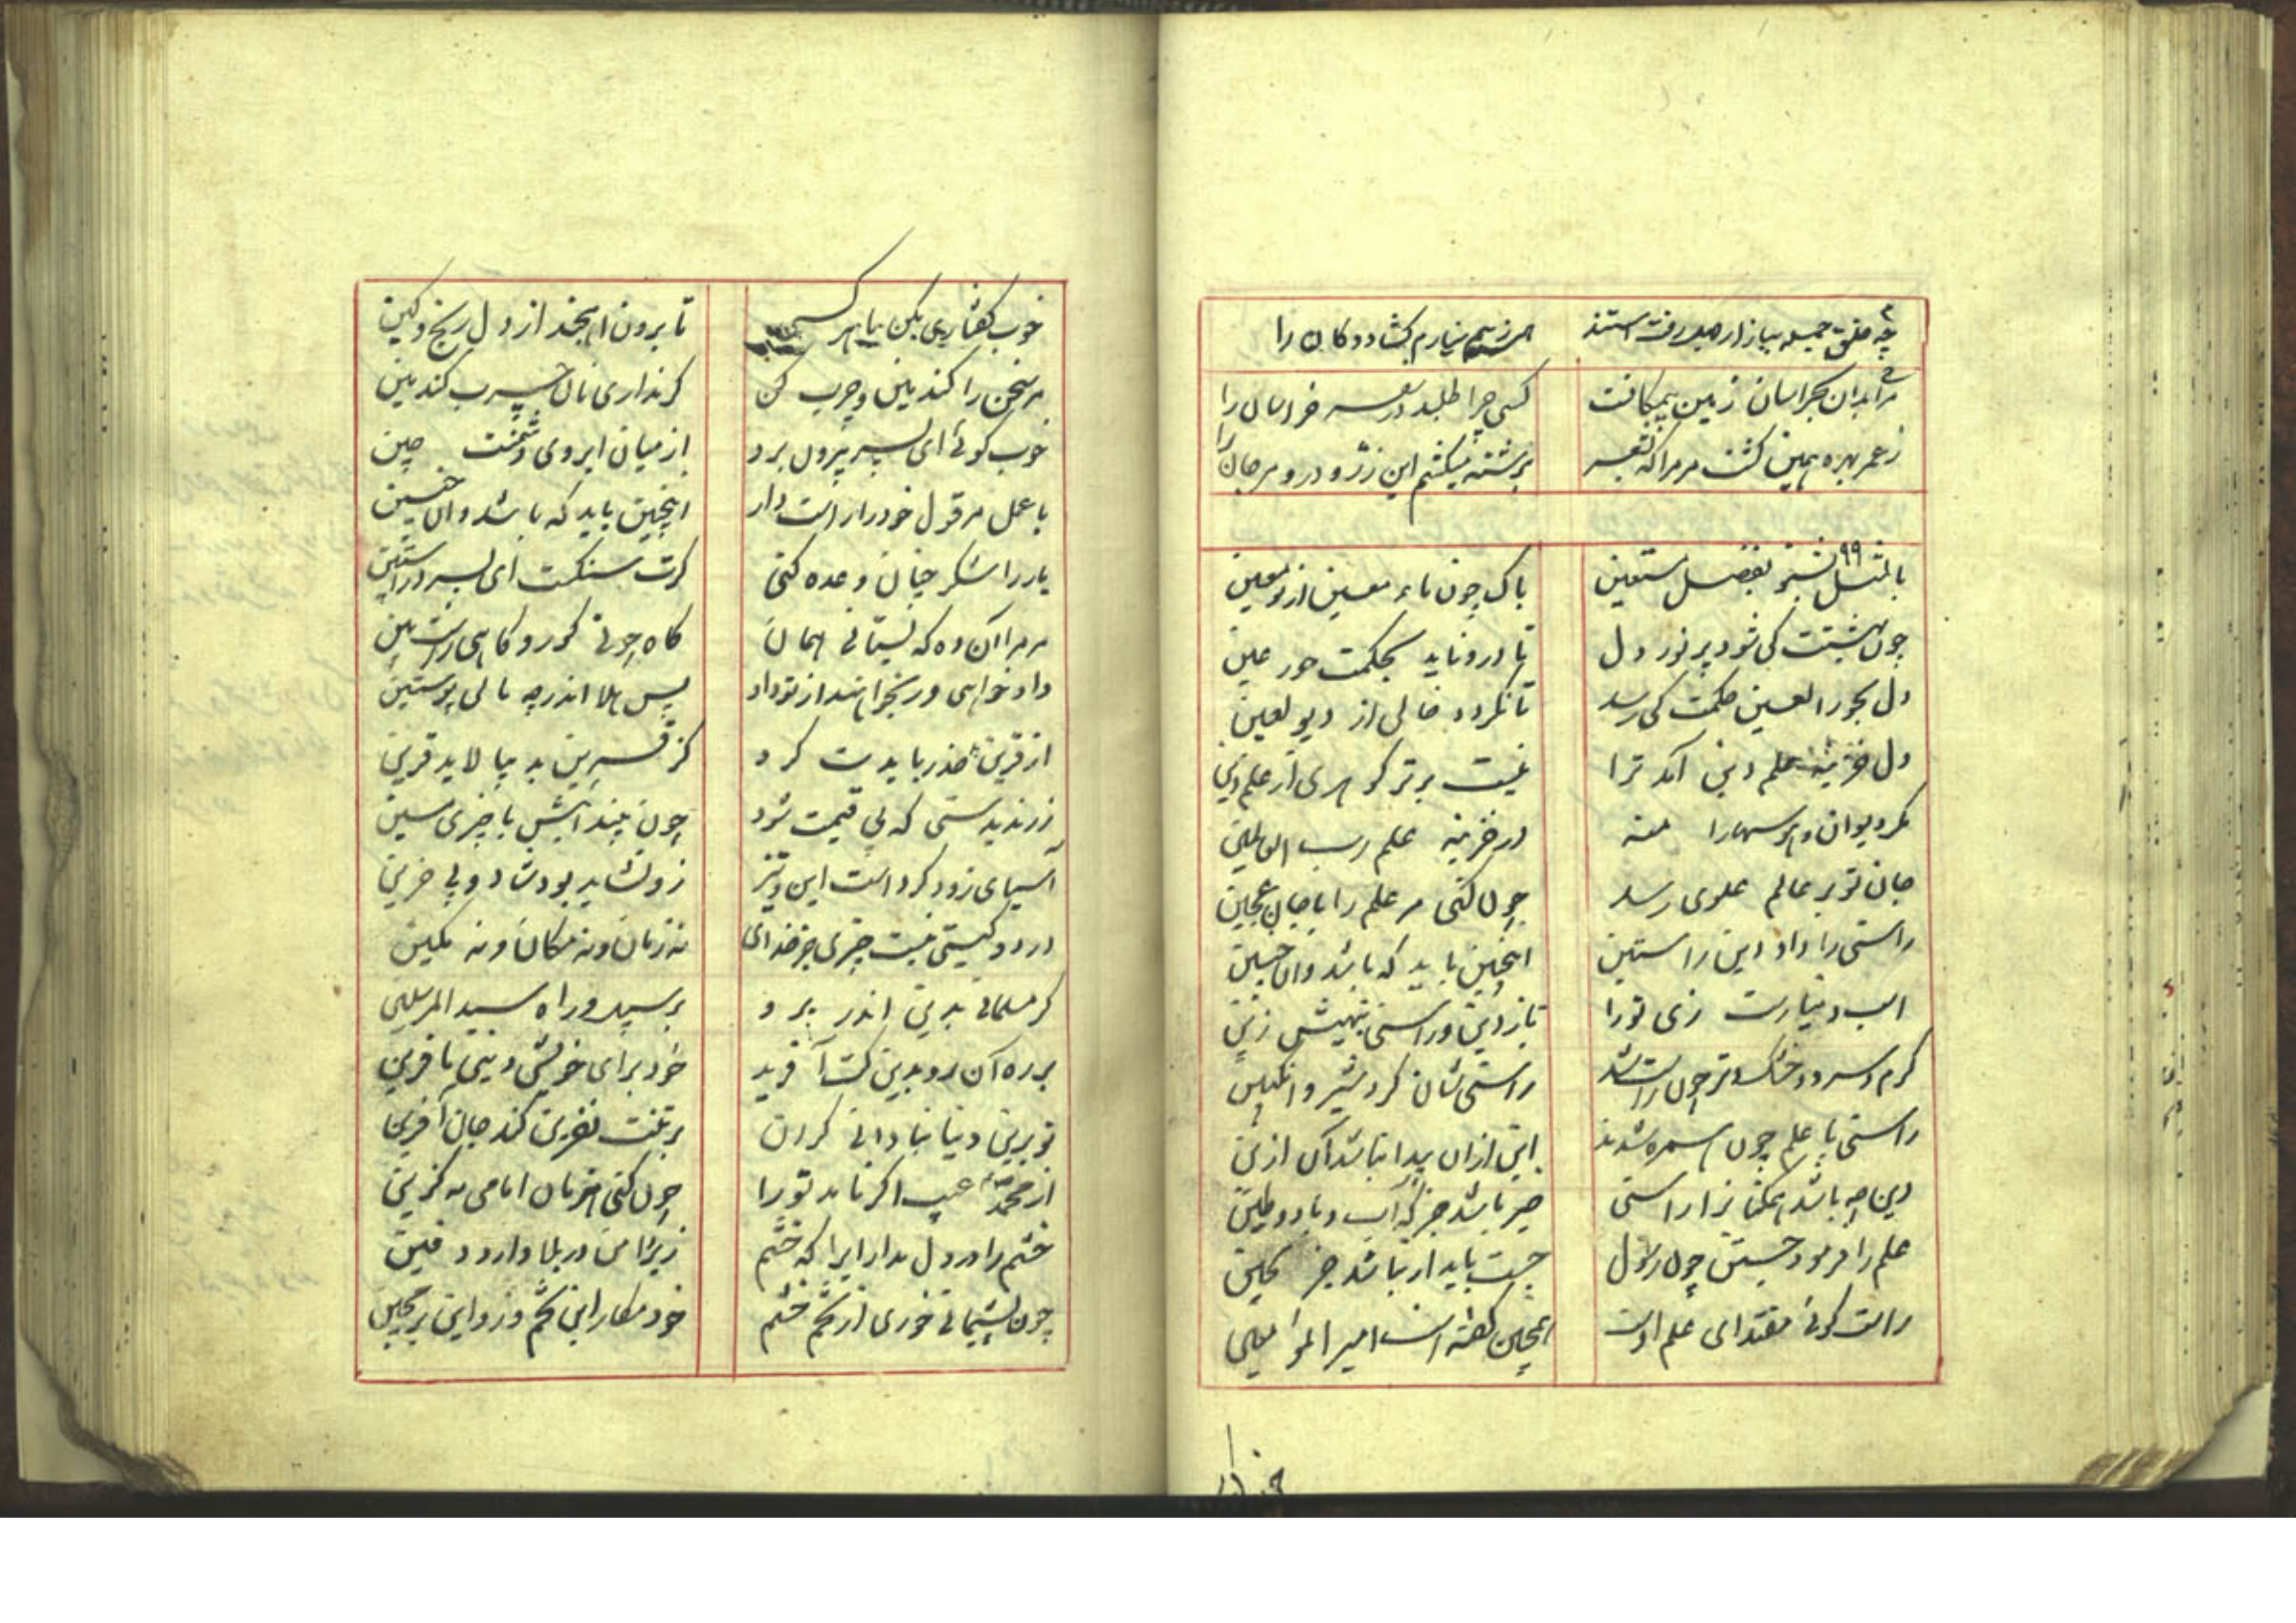 چه خلق جمله ببازار جهل رفته استند همی ز بیم نیارم کشاد دوکان را
مرا بدان که خراسان زمین یمکانست کسی چرا طلبد در سفر خراسان را
ز عمر بهره همین کشت مر مرا که بشعر برشته میکشم این زر و در و مرجان را
۹۹
پاک چون ماء معین از نو معین
چون بهشتت کی شود پر نور دل تا درو ناید بحکمت حور عین
دل بحور العین حکمت کی رسد تا نگردد خالی از دیو لعین
دل خزینه علم دین آمد ترا نیست برتر کوهری از علم دین
مکر دیوان و هوسها را منه در خزینه علم رب العالمین
جان تو بر عالم علوی رسد چون کنی مر علم را با جان عجین
راستی را داد دین راستین اینچنین باید که باشد و انچنین
اسب دنیا دست ندهد تو را تا ز دین و راستی ننهیش زین
کرم و سرد و خشک و تر چون راست شد راستی شان کرد شیر و انکبین
راستی با علم چون همبره شدند این از ان پیدا نباشد آن ازین
دین چه باشد همکنانرا راستی چیز باشد جز که آب و باد و طین
علم را فرمود جستن چون رسول جست باید ار نباشد جز بچین
راست کوئی مقتدای علم اوست همچنین کفته است امیر المؤمنین
خوب گفتاری بکن با هر کسی تا برون اهنجد از دل رنج و کین
مر سخن را کندمین و چرب کن کر نداری نان چرب کندمین
خوب کوئی ای پسر بیرون برد از میان ابروی دشمنت چین
با عمل مر قول خود را راست دار اینچنین باید که باشد و انچنین
یار را شکر چنان وعده کنی کرت سنکست ای پسر در آستین
مر مرا آن ده که بستانی همان کاه چونی کور و کاهی راست بین
داد خواهی ور بخواهند از تو داد پس هلا اندر چه مالی پوستین
از قرین بد حذر بایدت کرد کز قرین بد بیالاید قرین
زر ندیدستی که بی قیمت شود چون بینداییش با چیزی مسین
آسیای زود کرد است این و تیز زو نشاید بود شاد و نی حزین
در دو کیتی نیست چیزی جز خدای نه زمان و نه مکان و نه مکین
کر مسلمانی بدین اندر برو بر سبیل و راه سید المرسلین
بر ره آن رو بدین کت آفرید خود برای خویش دینی نافرین
تو برین دنیا بنادانی کردن بر تنت نفرین کند جان آفرین
از محمد عیب اکر ناید تو را چون کنی اخر زمان امامی به کزین
خشم را در دل مدار ایرا که خشم زیر دامن در بلا دارد دفین
چون پشیمانی خوری از تخم خشم خود مکار این تخم و زو این بر مچین